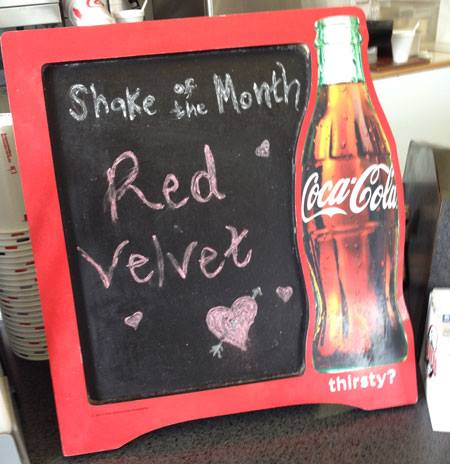 Shake of the Month
Red
Velvet
Coca-Cola
thirsty?